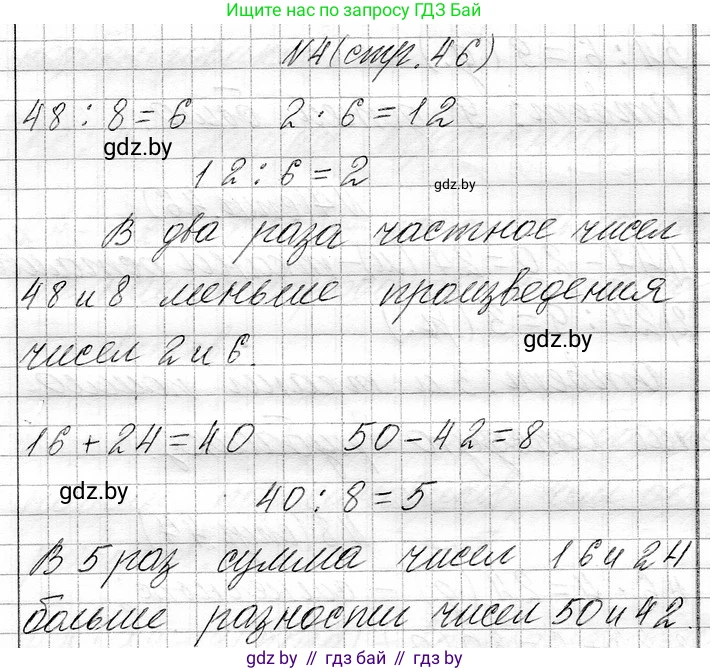 Ищите нас по запросу ГДЗ Бай
N4(стр. 46)
48 : 8 = 6 2 · 6 = 12
gdz.by
12 : 6 = 2
gdz.by
В два раза частное чисел
48 и 8 меньше произведения
gdz.by
чисел 2 и 6.
16 + 24 = 40 50 - 42 = 8
gdz.by
40 : 8 = 5
В 5 раз сумма чисел 16 и 24
больше разности чисел 50 и 42.
gdz.by // гдз бай // gdz.by